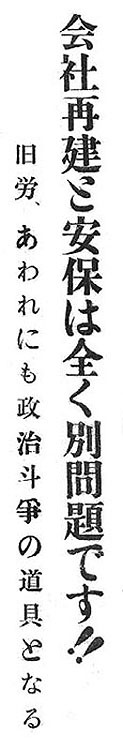 会社再建と安保は全く別問題です!!
旧労、あわれにも政治斗爭の道具となる